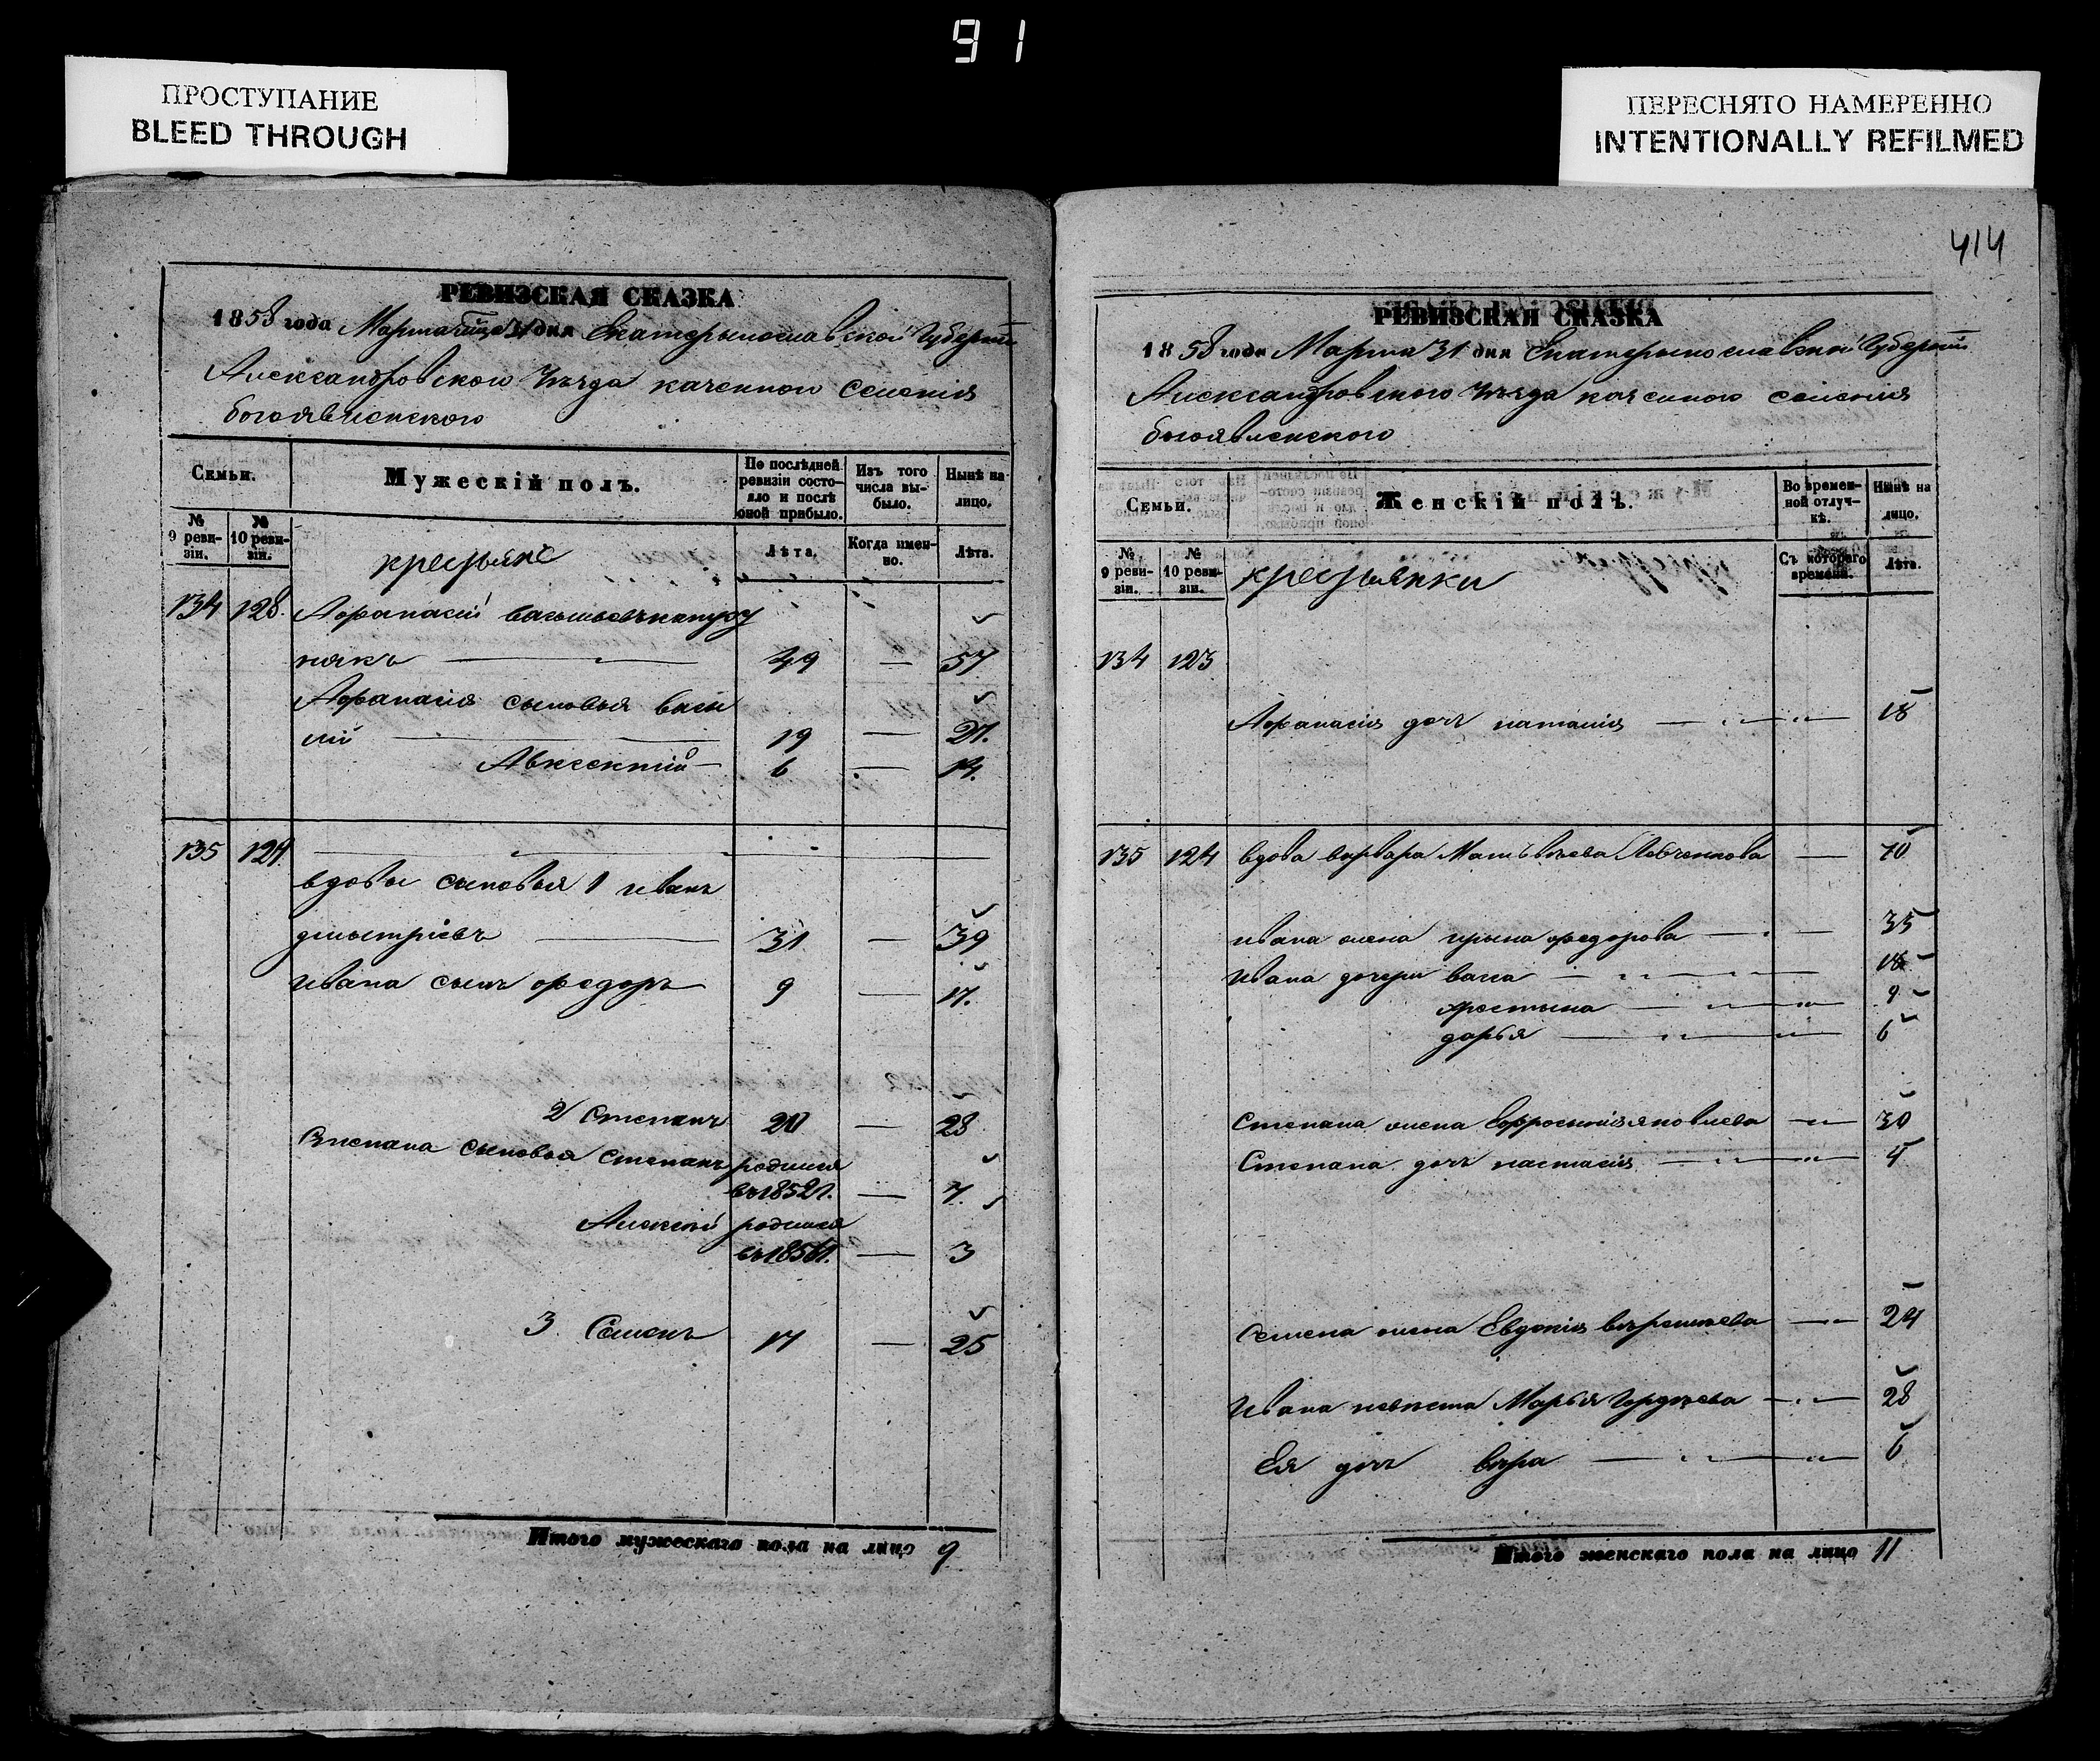 91
ПРОСТУПАНИЕ
BLEED THROUGH
ПЕРЕСНЯТО НАМЕРЕННО
INTENTIONALLY REFILMED
РЕВИЗСКАЯ СКАЗКА
1858 года Марта 31 дня Екатерынославской Губернии
Александровского Уѣзда казенного Селения
богоявленского
Семьи.
Мужескій полъ.
По послѣдней ревизіи состояло и послѣ оной прибыло.
Изъ того числа выбыло.
Ныне на лицо.
№ 9 ревизіи.
№ 10 ревизіи.
крестьяне
Лѣта.
Когда именно.
Лѣта.
134 123. Афанасий
някъ 49 — 57
Афанасия сыновья васы
лий 19 — 27.
Авксентий 6 — 14.
135 124.
вдовы сыновья 1 иванъ
дмытріевъ 31 — 39
ивана сынъ федоръ 9 — 17.
2 Степанъ 20 — 28
Степана сыновья Степанъ родился
въ 1852 г. — 7.
Алексей родился
въ 1856 г. — 3
3 Семенъ 17 — 25
Итого мужескаго пола на лицо 9
414
РЕВИЗСКАЯ СКАЗКА
1858 года Марта 31 дня Екатерынославской Губернии
Александровского Уѣзда казенного селения
богоявленского
Семьи.
Женскій полъ.
Во временной отлучкѣ.
Нынѣ на лицо.
№ 9 ревизіи.
№ 10 ревизіи.
крестьянки
Съ котораго времени.
Лѣта.
134 123
Афанасия дочь наталия 18
135 124 вдова варвара Матвѣева 70
ивана жена ирына федорова 35
ивана дочери васса 18
хрыстына 9
дарья 6
Степана жена Ефросыния яковлева 30
Степана дочь настасия 4
Семена жена Евдокия 24
Ивана невѣста Марья Гордѣева 28
Ея дочь вѣра 6
Итого женскаго пола на лицо 11